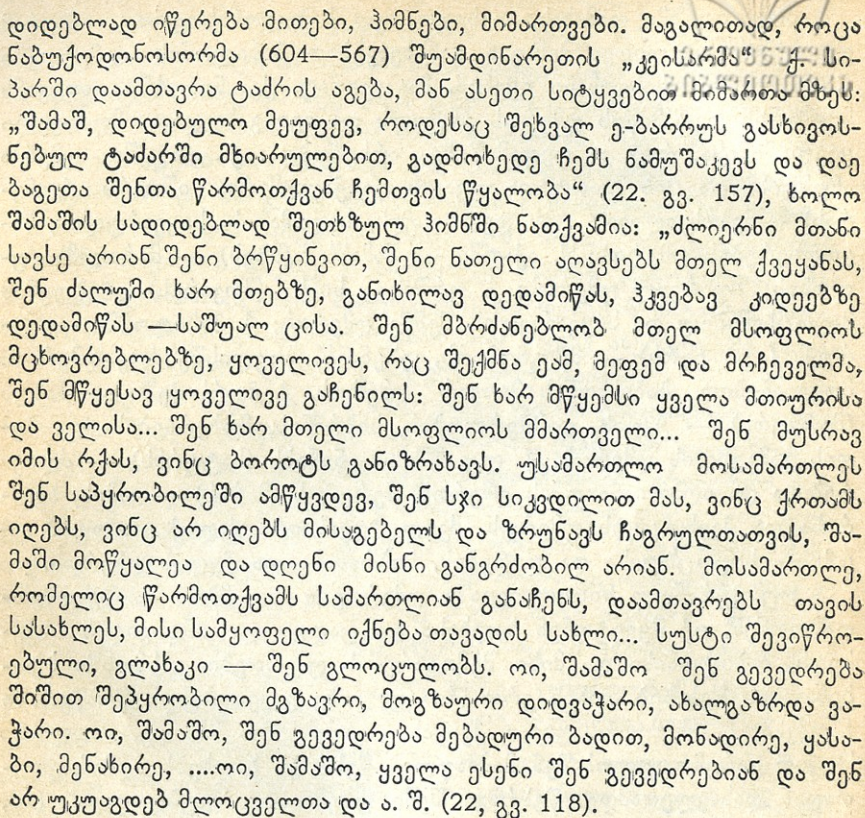 დიდებლად იწერება მითები, ჰიმნები, მიმართვები. მაგალითად, როცა
ნაბუქოდონოსორმა (604—567) შუამდინარეთის „კეისარმა“ ქ. სი-
პარში დაამთავრა ტაძრის აგება, მან ასეთი სიტყვებით მიმართა მზეს:
„შამაშ, დიდებულო მეუფევ, როდესაც შეხვალ ე-ბარრუს გასხივოს-
ნებულ ტაძარში მხიარულებით, გადმოხედე ჩემს ნამუშაკევს და დაე
ბაგეთა შენთა წარმოთქვან ჩემთვის წყალობა“ (22. გვ. 157), ხოლო
შამაშის სადიდებლად შეთხზულ ჰიმნში ნათქვამია: „ძლიერნი მთანი
სავსე არიან შენი ბრწყინვით, შენი ნათელი აღავსებს მთელ ქვეყანას,
შენ ძალუმი ხარ მთებზე, განიხილავ დედამიწას, ჰკვებავ კიდეებზე
დედამიწას —საშუალ ცისა. შენ მბრძანებლობ მთელ მსოფლიოს
მცხოვრებლებზე, ყოველივეს, რაც შექმნა ეამ, მეფემ და მრჩეველმა,
შენ მწყესავ ყოველივე გაჩენილს: შენ ხარ მწყემსი ყველა მთიურისა
და ველისა... შენ ხარ მთელი მსოფლიოს მმართველი... შენ მუსრავ
იმის რქას, ვინც ბოროტს განიზრახავს. უსამართლო მოსამართლეს
შენ საპყრობილეში ამწყვდევ, შენ სჯი სიკვდილით მას, ვინც ქრთამს
იღებს, ვინც არ იღებს მისაგებელს და ზრუნავს ჩაგრულთათვის, შა-
მაში მოწყალეა და დღენი მისნი განგრძობილ არიან. მოსამართლე,
რომელიც წარმოთქვამს სამართლიან განაჩენს, დაამთავრებს თავის
სასახლეს, მისი სამყოფელი იქნება თავადის სახლი... სუსტი შევიწრო-
ებული, გლახაკი — შენ გლოცულობს. ოი, შამაშო შენ გევედრება
შიშით შეპყრობილი მგზავრი, მოგზაური დიდვაჭარი, ახალგაზრდა ვა-
ჭარი. ოი, შამაშო, შენ გევედრება მებადური ბადით, მონადირე, ყასა-
ბი, მენახირე, ....ოი, შამაშო, ყველა ესენი შენ გევედრებიან და შენ
არ უკუაგდებ მლოცველთა და ა. შ. (22, გვ. 118).